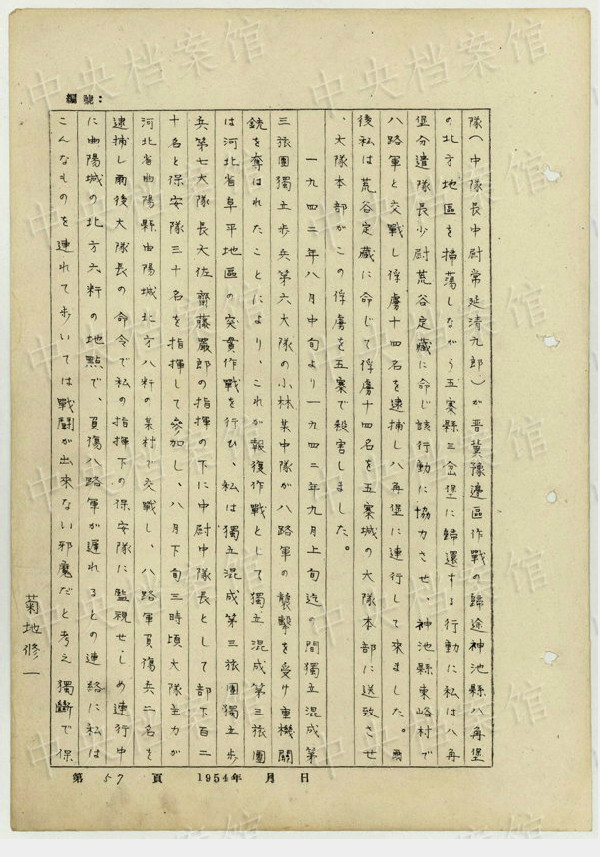 編號：
隊（中隊長中尉常延清九郎）が晋冀豫邊區作戰の歸途神池縣八角堡
の北方地區を掃蕩しながら五寨縣三岔堡に歸還する行動に私は八角
堡分遣隊長少尉荒谷定藏に命じ該行動に協力させ、神池縣東峪村で
八路軍と交戰し俘虜十四名を逮捕し八角堡に連行して來ました。爾
後私は荒谷定藏に命じて俘虜十四名を五寨城の大隊本部に送致させ
、大隊本部がこの俘虜を五寨で殺害しました。
一九四二年八月中旬より一九四二年九月上旬迄の間獨立混成第
三旅團獨立步兵第六大隊の小林某中隊が八路軍の襲擊を受け重機關
銃を奪はれたことにより、これが報復作戰として獨立混成第三旅團
は河北省阜平地區の突貫作戰を行ひ、私は獨立混成第三旅團獨立步
兵第七大隊長大佐齋藤嚴郎の指揮の下に中尉中隊長として部下百二
十名と保安隊三十名を指揮して參加し、八月下旬三時頃大隊主力が
河北省曲陽縣曲陽城北方八粁の某村で交戰し、八路軍負傷兵二名を
逮捕し爾後大隊長の命令で私の指揮下の保安隊に監視せしめ連行中
に曲陽城の北方六粁の地點で、負傷八路軍が遲れるとの連絡に私は
こんなものを連れて步いては戰鬪が出來ない邪魔だと考え獨斷で保
菊地修一
第 57 頁 1954年 月 日
中央档案馆